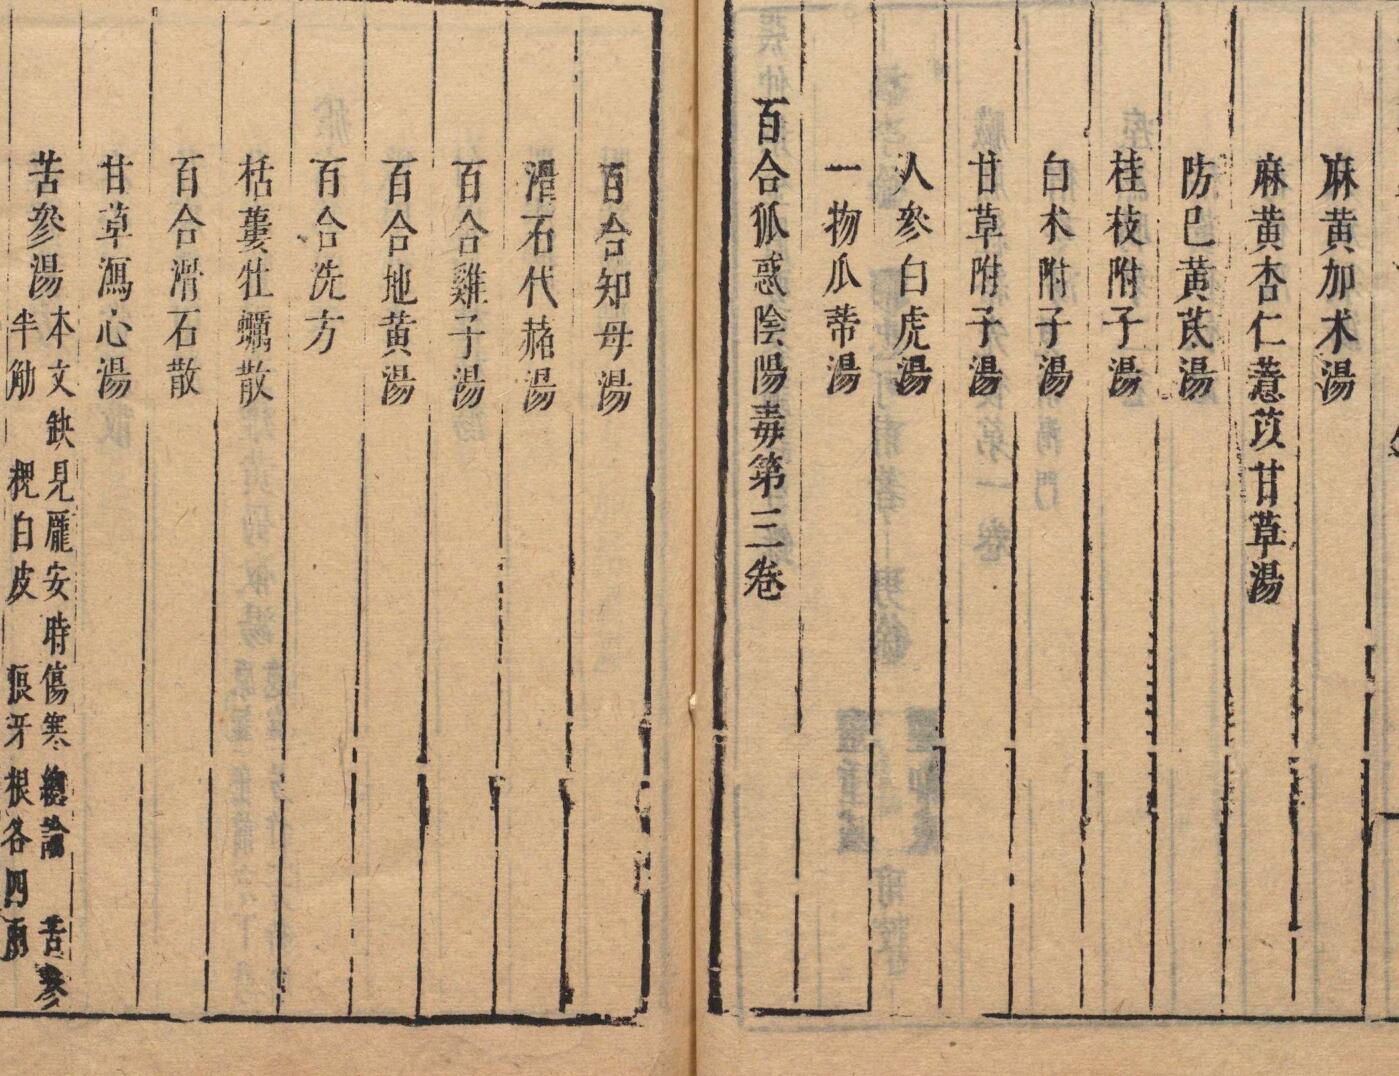 麻黄加术湯
麻黄杏仁薏苡甘草湯
防已黄芪湯
桂枝附子湯
白术附子湯
甘草附子湯
人參白虎湯
一物瓜蒂湯
百合狐惑陰陽毒第三卷
百合知母湯
滑石代赭湯
百合雞子湯
百合地黄湯
百合洗方
栝蔞牡蠣散
百合滑石散
甘草瀉心湯
苦參湯
本文缺見龐安時傷寒總論 苦參
半觔 槐白皮 狼牙根各四兩